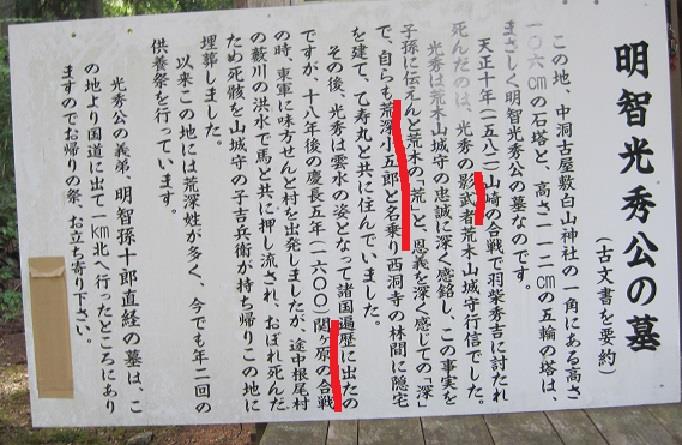 明智光秀公の墓
(古文書を要約)
この地、中洞古屋敷白山神社の一角にある高さ
一〇六cmの石塔と、高さ一一二cmの五輪の塔は、
まさしく明智光秀公の墓なのです。
天正十年(一五八二)山崎の合戦で羽柴秀吉に討たれ
死んだのは、光秀の影武者荒木山城守行信でした。
光秀は荒木山城守の忠誠に深く感銘し、この事実を
子孫に伝えんと荒木の「荒」と、恩義を深く感じての「深」
で、自らも荒深小五郎と名乗り西洞寺の林間に隠宅
を建て、乙寿丸と共に住んでいました。
その後、光秀は雲水の姿となって諸国遍歴に出たの
ですが、十八年後の慶長五年(一六〇〇)関ヶ原の合戦
の時、東軍に味方せんと村を出発しましたが、途中根尾村
の藪川の洪水で馬と共に押し流され、おぼれ死んだ
ため死骸を山城守の子吉兵衛が持ち帰りこの地に
埋葬しました。
以来この地には荒深姓が多く、今でも年二回の
供養祭を行っています。
光秀公の義弟、明智孫十郎直経の墓は、こ
の地より国道に出て1km北へ行ったところにあり
ますのでお帰りの祭、お立ち寄り下さい。